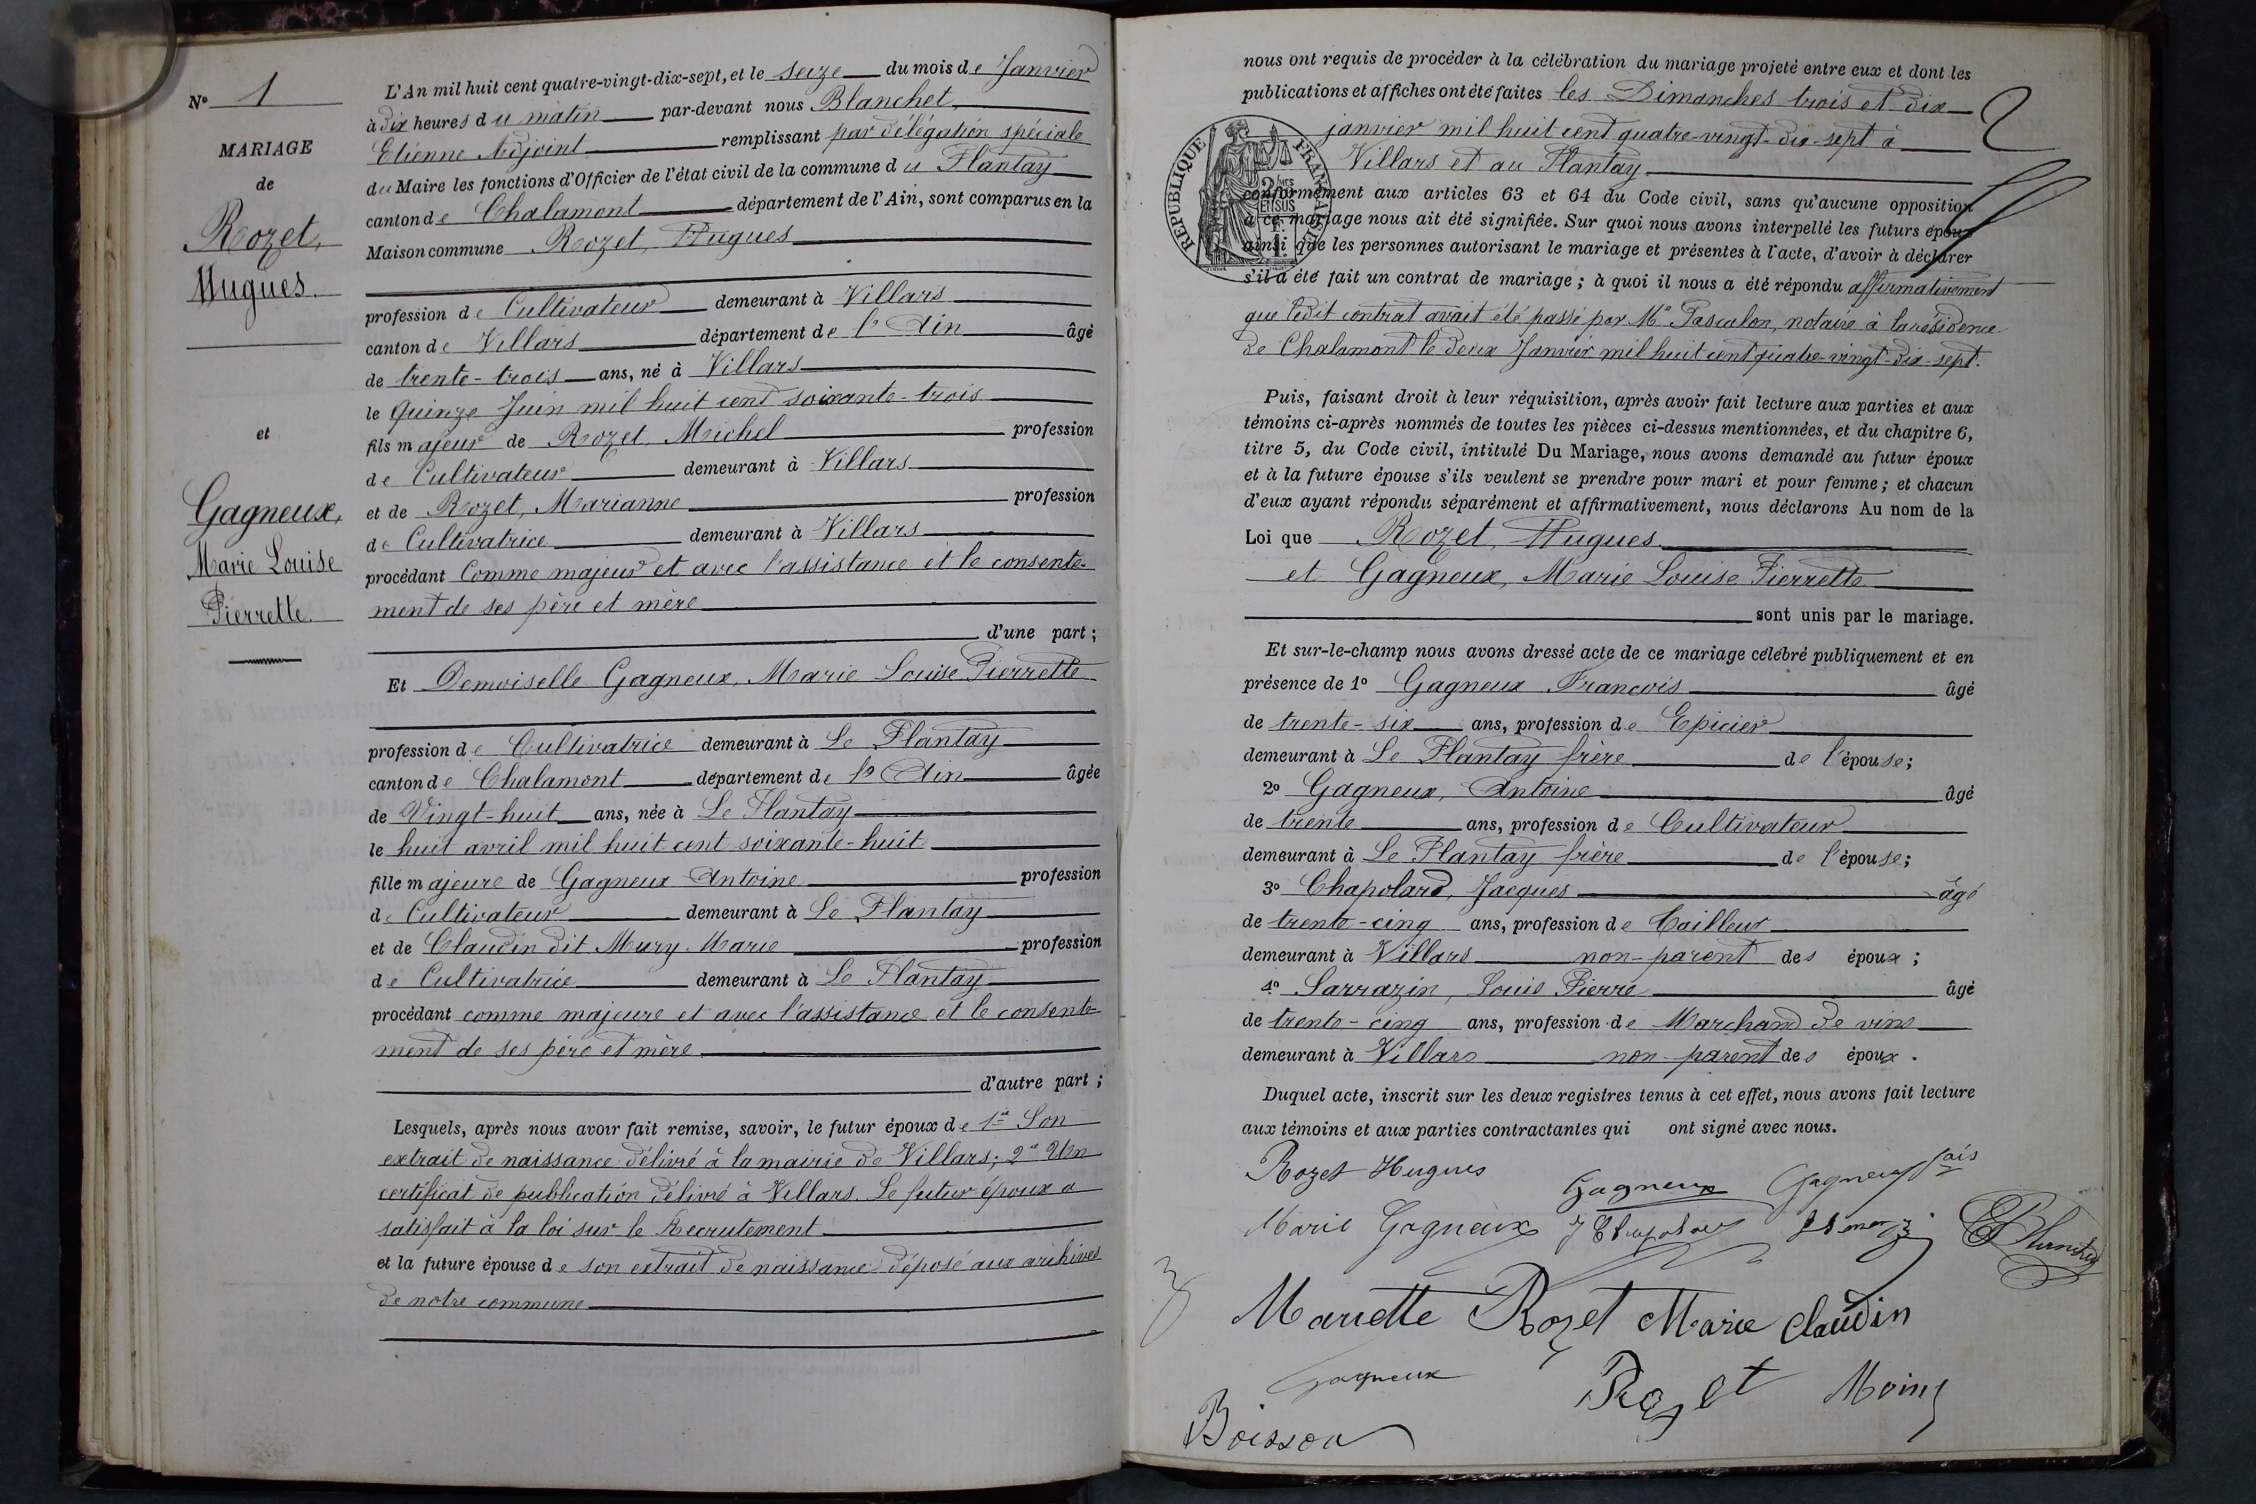 N° 1
MARIAGE
de
Rozet,
Hugues.
et
Gagneux,
Marie Louise
Pierrette.
L'An mil huit cent quatre-vingt-dix-sept, et le seize du mois de Janvier
à dix heures du matin par-devant nous Blanchet,
Etienne Adjoint remplissant par délégation spéciale
du Maire les fonctions d'Officier de l'état civil de la commune du Plantay
canton de Chalamont département de l'Ain, sont comparus en la
Maison commune Rozet, Hugues
profession de Cultivateur demeurant à Villars
canton de Villars département de l'Ain âgé
de trente-trois ans, né à Villars
le quinze Juin mil huit cent soixante-trois
fils majeur de Rozet, Michel profession
de Cultivateur demeurant à Villars
et de Rozet, Marianne profession
de Cultivatrice demeurant à Villars
procédant Comme majeur et avec l'assistance et le consente-
ment de ses père et mère
d'une part;
Et Demoiselle Gagneux, Marie Louise Pierrette
profession de Cultivatrice demeurant à Le Plantay
canton de Chalamont département de l'Ain âgée
de Vingt-huit ans, née à Le Plantay
le huit avril mil huit cent soixante-huit
fille majeure de Gagneux Antoine profession
de Cultivateur demeurant à Le Plantay
et de Claudin dit Mury Marie profession
de Cultivatrice demeurant à Le Plantay
procédant comme majeure et avec l'assistance et le consente-
ment de ses père et mère
d'autre part;
Lesquels, après nous avoir fait remise, savoir, le futur époux de 1° Son
extrait de naissance délivré à la mairie de Villars; 2° Un
certificat de publication délivré à Villars. Le futur époux a
satisfait à la loi sur le Recrutement
et la future épouse de son extrait de naissance déposé aux archives
de notre commune
nous ont requis de procéder à la célébration du mariage projeté entre eux et dont les
publications et affiches ont été faites les Dimanches trois et dix
janvier mil huit cent quatre-vingt-dix-sept à
Villars et au Plantay
RÉPUBLIQUE FRANÇAISE
conformément aux articles 63 et 64 du Code civil, sans qu'aucune opposition
à ce mariage nous ait été signifiée. Sur quoi nous avons interpellé les futurs époux
ainsi que les personnes autorisant le mariage et présentes à l'acte, d'avoir à déclarer
s'il a été fait un contrat de mariage; à quoi il nous a été répondu affirmativement
que ledit contrat avait été passé par Me Pascalon, notaire à la résidence
de Chalamont le deux Janvier mil huit cent quatre-vingt-dix-sept.
Puis, faisant droit à leur réquisition, après avoir fait lecture aux parties et aux
témoins ci-après nommés de toutes les pièces ci-dessus mentionnées, et du chapitre 6,
titre 5, du Code civil, intitulé Du Mariage, nous avons demandé au futur époux
et à la future épouse s'ils veulent se prendre pour mari et pour femme; et chacun
d'eux ayant répondu séparément et affirmativement, nous déclarons Au nom de la
Loi que Rozet, Hugues
et Gagneux, Marie Louise Pierrette
sont unis par le mariage.
Et sur-le-champ nous avons dressé acte de ce mariage célébré publiquement et en
présence de 1° Gagneux François âgé
de trente-six ans, profession de Epicier
demeurant à Le Plantay frère de l'épouse;
2° Gagneux, Antoine âgé
de trente ans, profession de Cultivateur
demeurant à Le Plantay frère de l'épouse;
3° Chapolard, Jacques âgé
de trente-cinq ans, profession de Tailleur
demeurant à Villars non-parent des époux;
4° Sarrazin, Louis Pierre âgé
de trente-cinq ans, profession de Marchand de vins
demeurant à Villars non-parent des époux.
Duquel acte, inscrit sur les deux registres tenus à cet effet, nous avons fait lecture
aux témoins et aux parties contractantes qui ont signé avec nous.
Rozet Hugues Gagneux Gagneux fais
Marie Gagneux J Chapolard EBlanchet
Mariette Rozet Marie Claudin
Gagneux Rozet
Boisson